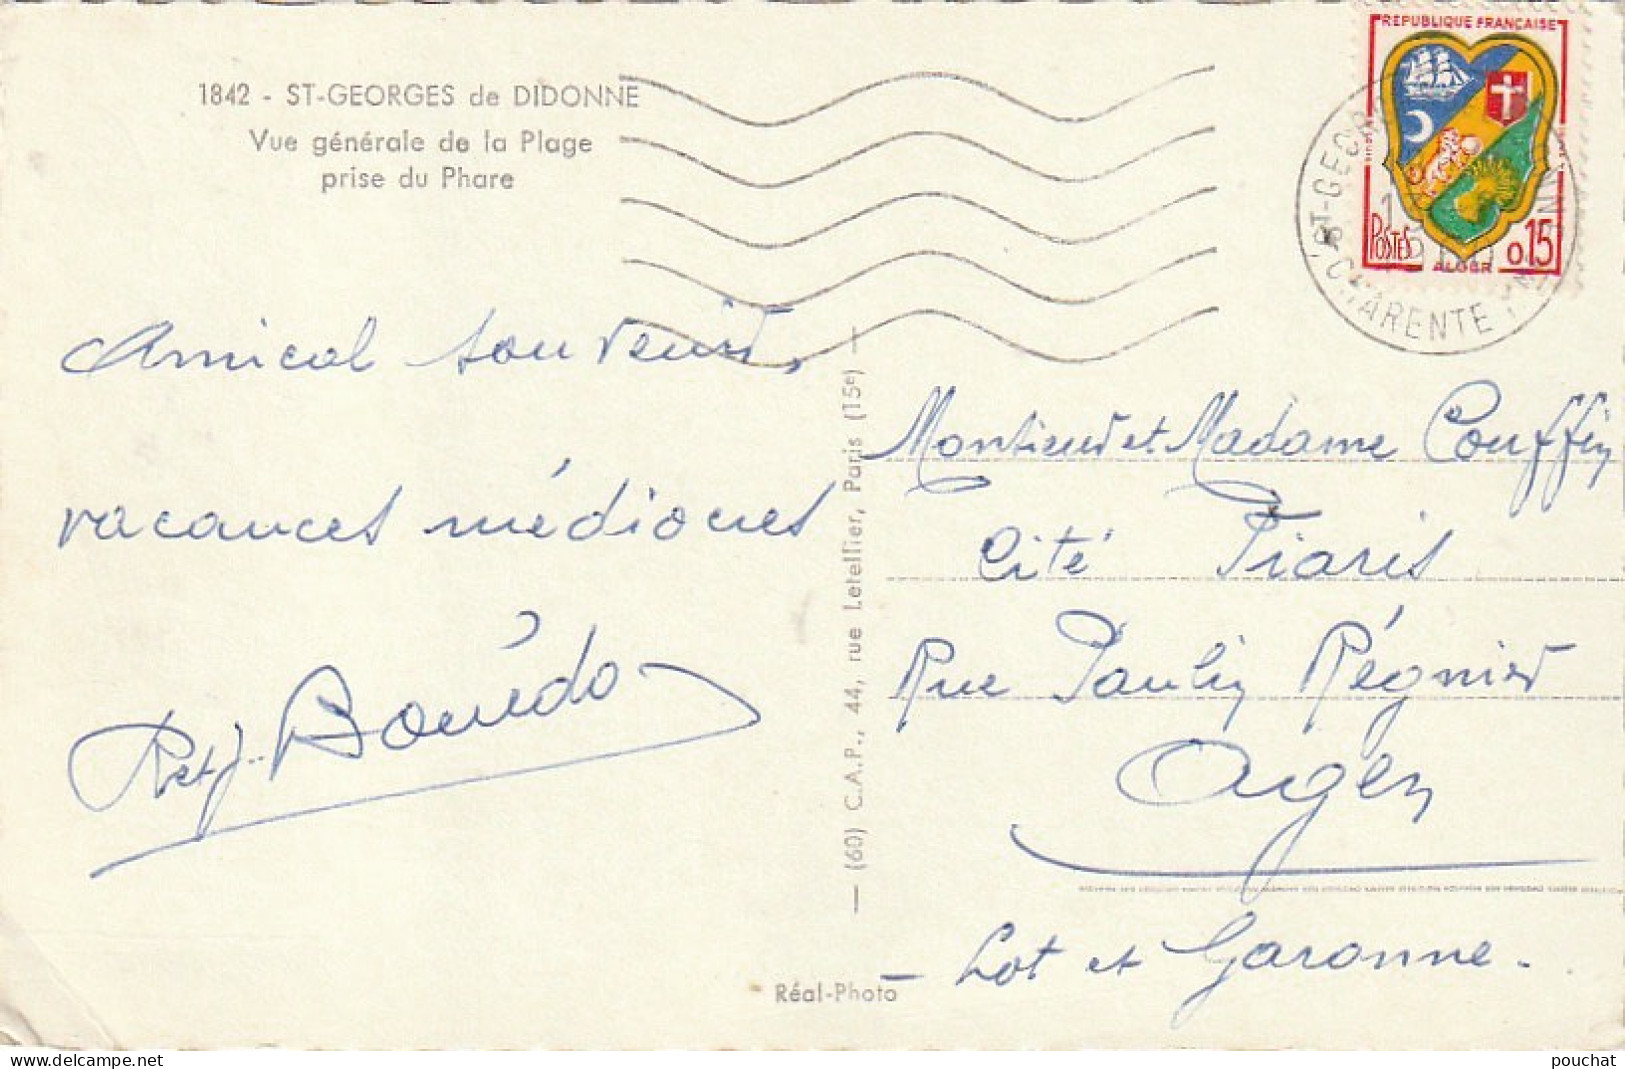 1842 - ST-GEORGES de DIDONNE
Vue générale de la Plage
prise du Phare
REPUBLIQUE FRANÇAISE
POSTES
ALGER
0,15
ST-GEOR
CHARENTE
Amical souvenir,
vacances médiocres
R et J. Bourdo
— (60) C.A.P., 44, rue Letellier, Paris (15e) —
Monsieur et Madame Couffin
Cité Piaris
Rue Paulin Régnier
Agen
- Lot et Garonne -
Réal-Photo
pouchat